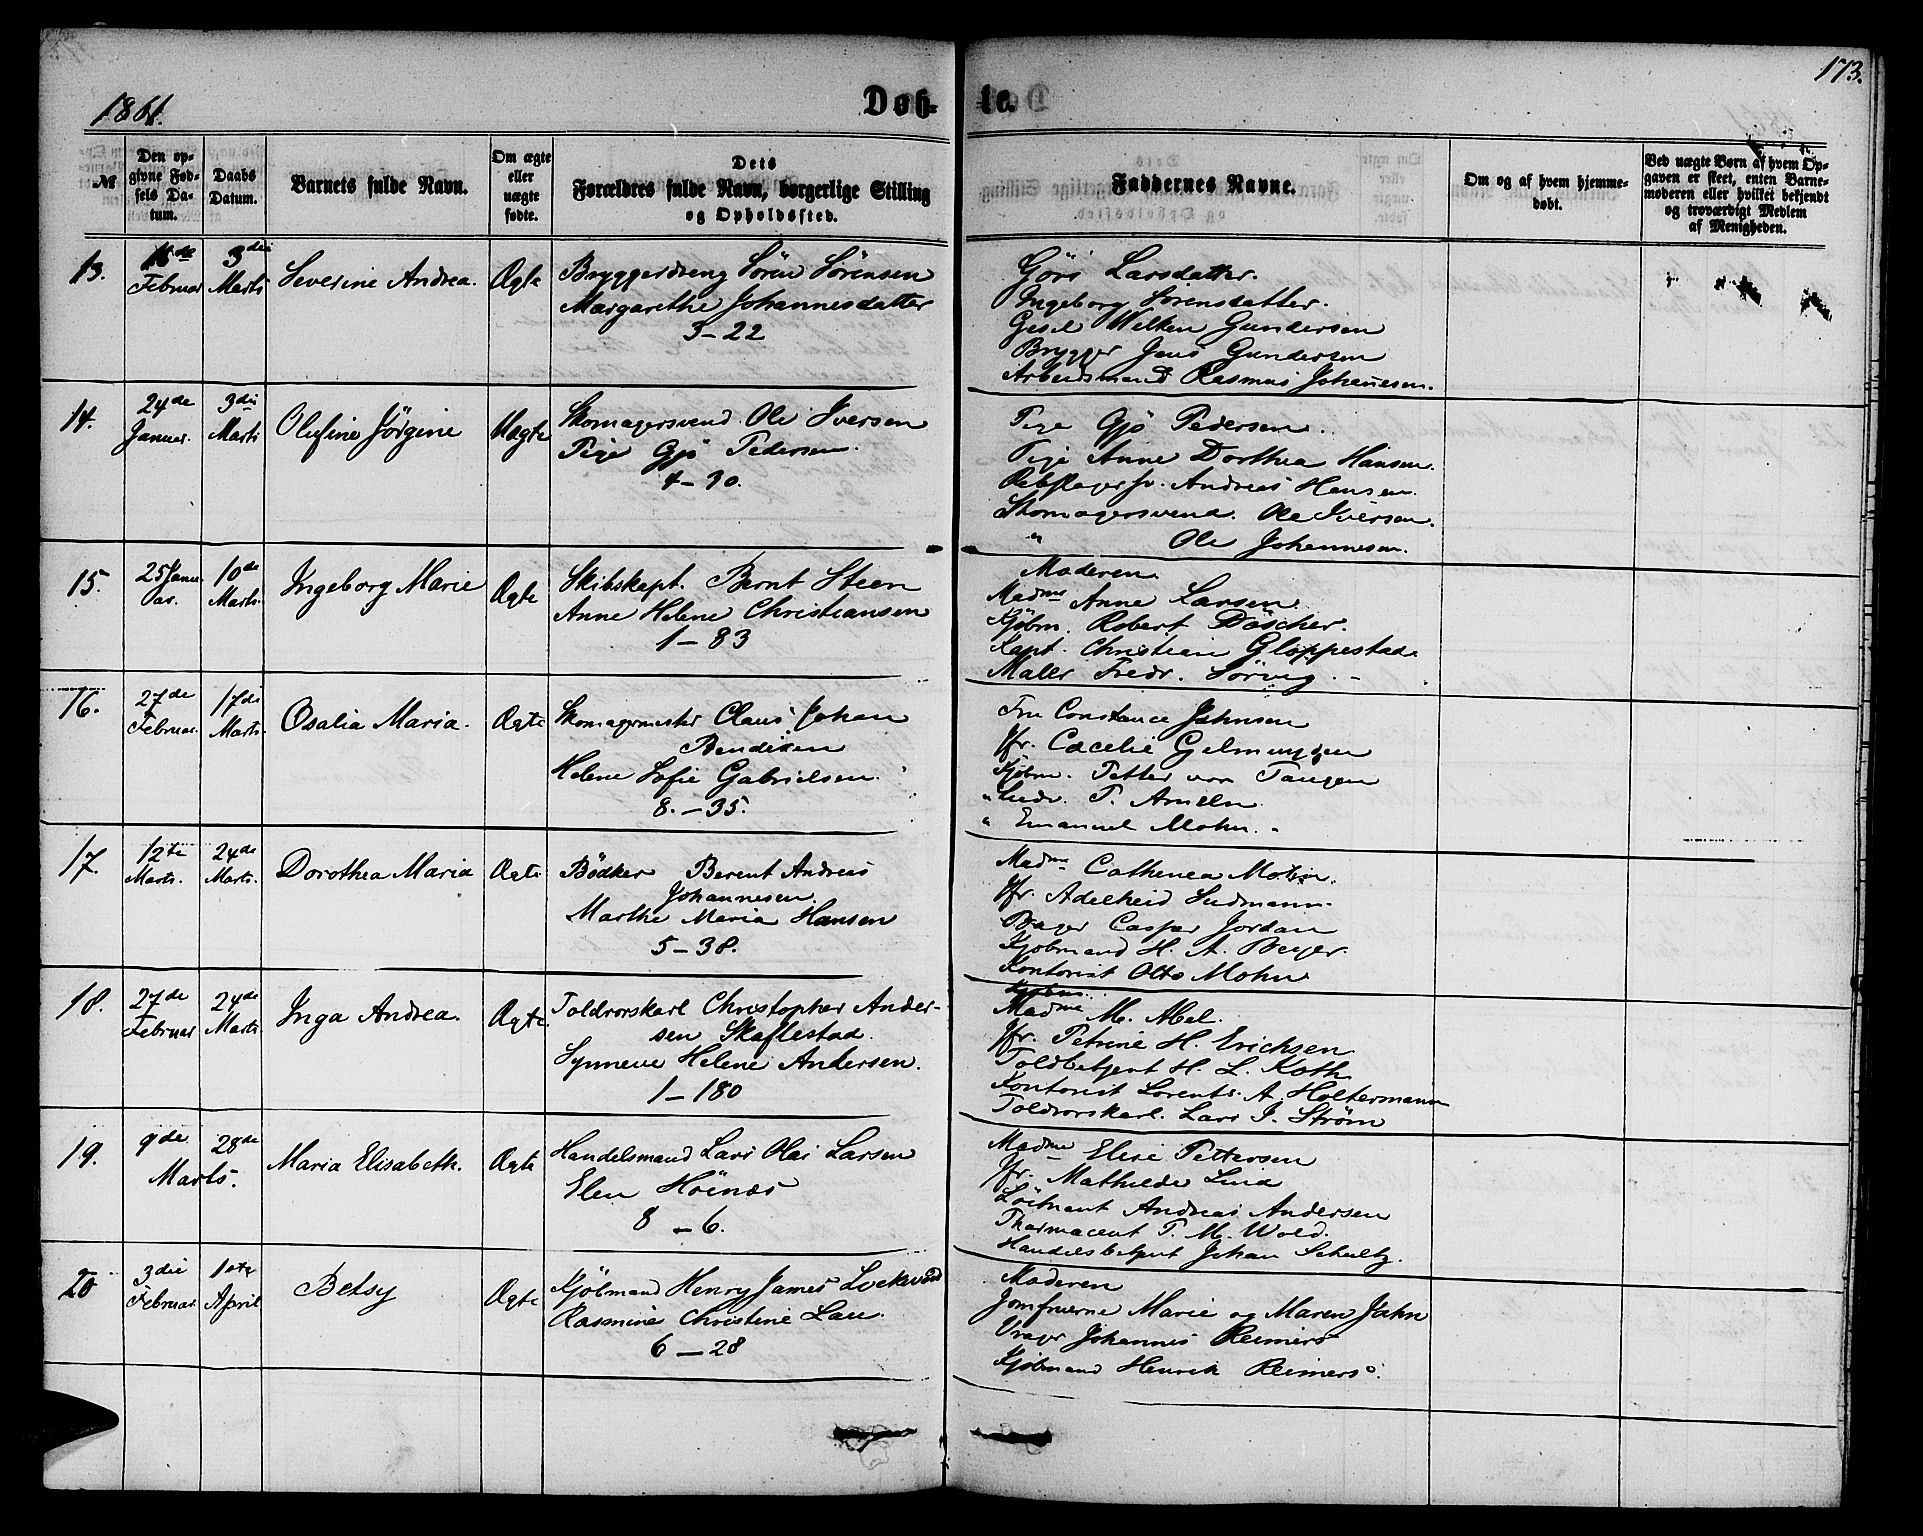 1861.
Døb-
te.
173.
№
Den opgivne Fødsels Datum.
Daabs Datum.
Barnets fulde Navn.
Om ægte eller uægte fødte.
Dets Forældres fulde Navn, borgerlige Stilling og Opholdssted.
Faddernes Navne.
Om og af hvem hjemmedøbt.
Ved uægte Børn af hvem Opgaven er skeet, enten Barnemoderen eller hvilket bekjendt og troværdigt Medlem af Menigheden.
13.
Februar
3die Marts
Severine Andrea.
Ægte
Bryggerdreng Sören Sörensen
Margarethe Johannesdatter
3-22
Gjöri Larsdatter.
Ingeborg Sörensdatter.
Gesel Welken Gundersen
Brygger Jens Gundersen
Arbeidsmand Rasmus Johanesen.
14.
24de Januar.
3die Marts
Olufine Jörgine
Uægte
Skomagersvend Ole Iversen
Pige Gjö Pedersen.
4-30.
Pige Gjö Pedersen.
Pige Anne Dorthea Hansen.
Rebslagersv. Andreas Hansen.
Skomagersvend. Ole Iversen.
" Ole Johannesen.
15.
25 Januar.
10de Marts.
Ingeborg Marie
Ægte
Skibskapt. Bernt Steen
Anne Helene Christiansen
1-83
Moderen
Madme Anne Larsen
Kjöbm. Robert Döscher.
Kapt. Christian Gloppestad.
Maler Fredr. Sörvig.
16.
27de Februar.
17de Marts.
Osalia Maria.
Ægte
Skomagermester Claus Johan
Bendixen
Helene Sofie Gabrielsen.
8.-35.
Fru Constance Jahnsen
Jfr. Cæcelie Gelmuyden
Kjöbm. Petter von Tangen
" Ludv. T. Ameln.
" Emanuel Mohn.
17.
12te Marts.
24de Marts.
Dorothea Maria
Ægte
Bödker Berent Andreas
Johannesen.
Marthe Maria Hansen
5-38.
Madme Cathinca Mohn.
Jfr. Adelheid Sudmann.
Bager Caspar Jordan
Kjöbmand H. A. Beyer.
Kontorist Otto Mohn
18.
27de Februar
24de Marts.
Inga Andrea.
Ægte.
Toldrorskarl Christopher Ander-
sen Skaftestad.
Synneve Helene Andersen.
1-180
Madme M. Abel.
Jfr. Petrine H. Erichsen
Toldbetjent H. L. Koth
Kontorist Lorents. A. Holtermann
Toldrorskarl. Lars I. Ström
19.
9de
28de
Marts.
Maria Elisabeth.
Ægte
Handelsmand Lars Olai Larsen
Elen Höinæs
8-6.
Madme Elise Pettersen
Jfr. Mathilde Lind
Löitnant Andreas Andersen
Pharmaceut T. M. Wold.
Handelsbetjent Johan Schultz.
20
3die Februar
1ste April
Betsy
Ægte
Kjöbmand Henry James Lockwood
Rasmine Christine Lau.
6-28
Moderen
Jomfruerne Marie og Maren Jahn
Vrager Johannes Reimers
Kjöbmand Henrik Reimers.